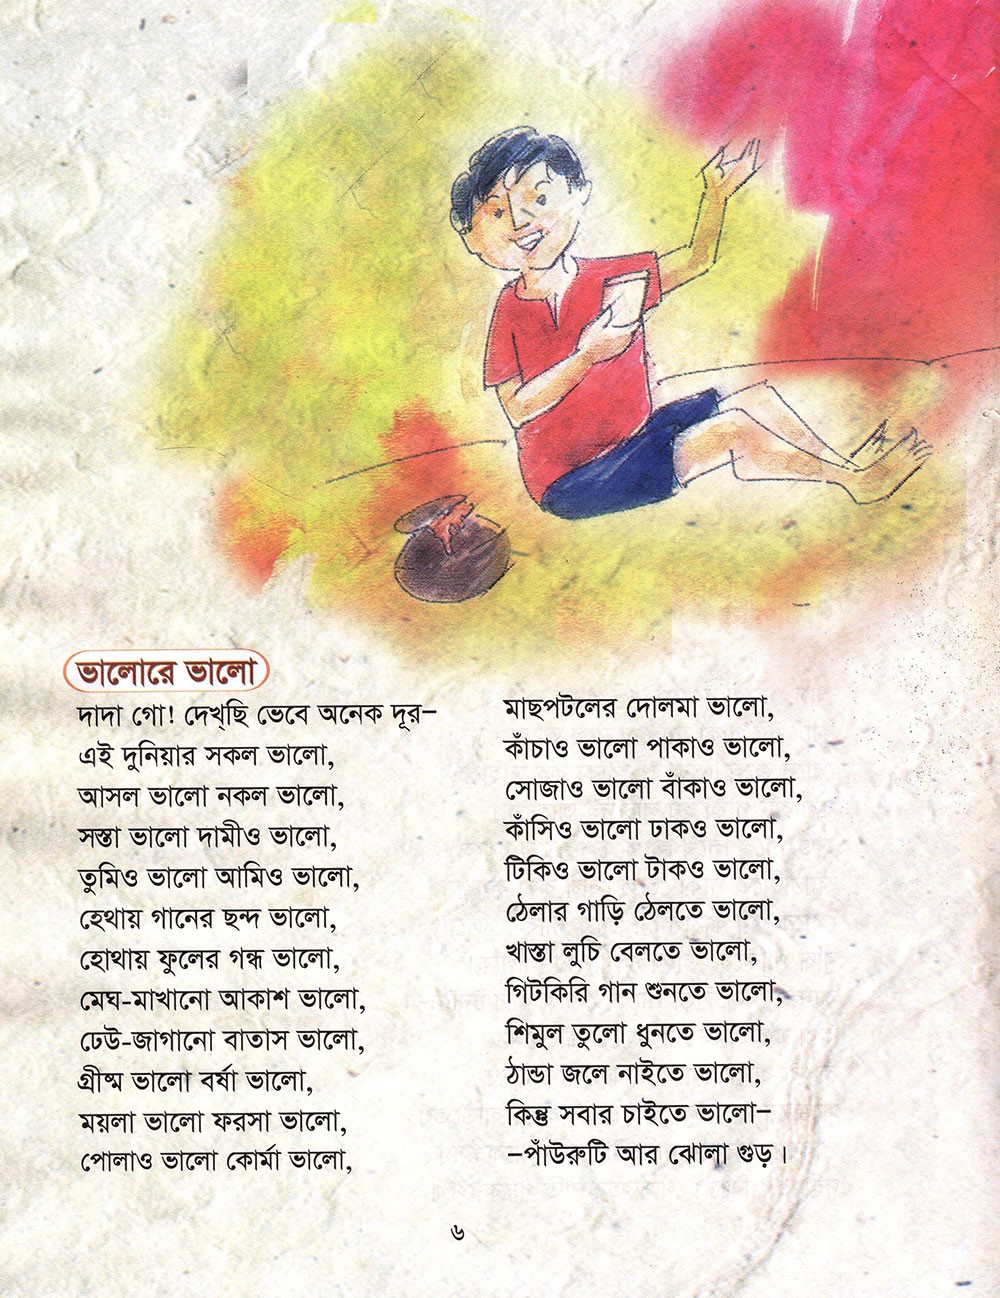 ভালোরে ভালো
দাদা গো! দেখ্‌ছি ভেবে অনেক দূর–
এই দুনিয়ার সকল ভালো,
আসল ভালো নকল ভালো,
সস্তা ভালো দামীও ভালো,
তুমিও ভালো আমিও ভালো,
হেথায় গানের ছন্দ ভালো,
হোথায় ফুলের গন্ধ ভালো,
মেঘ-মাখানো আকাশ ভালো,
ঢেউ-জাগানো বাতাস ভালো,
গ্রীষ্ম ভালো বর্ষা ভালো,
ময়লা ভালো ফরসা ভালো,
পোলাও ভালো কোর্মা ভালো,
মাছপটলের দোলমা ভালো,
কাঁচাও ভালো পাকাও ভালো,
সোজাও ভালো বাঁকাও ভালো,
কাঁসিও ভালো ঢাকও ভালো,
টিকিও ভালো টাকও ভালো,
ঠেলার গাড়ি ঠেলতে ভালো,
খাস্তা লুচি বেলতে ভালো,
গিটকিরি গান শুনতে ভালো,
শিমুল তুলো ধুনতে ভালো,
ঠান্ডা জলে নাইতে ভালো,
কিন্তু সবার চাইতে ভালো–
–পাঁউরুটি আর ঝোলা গুড়।
৬